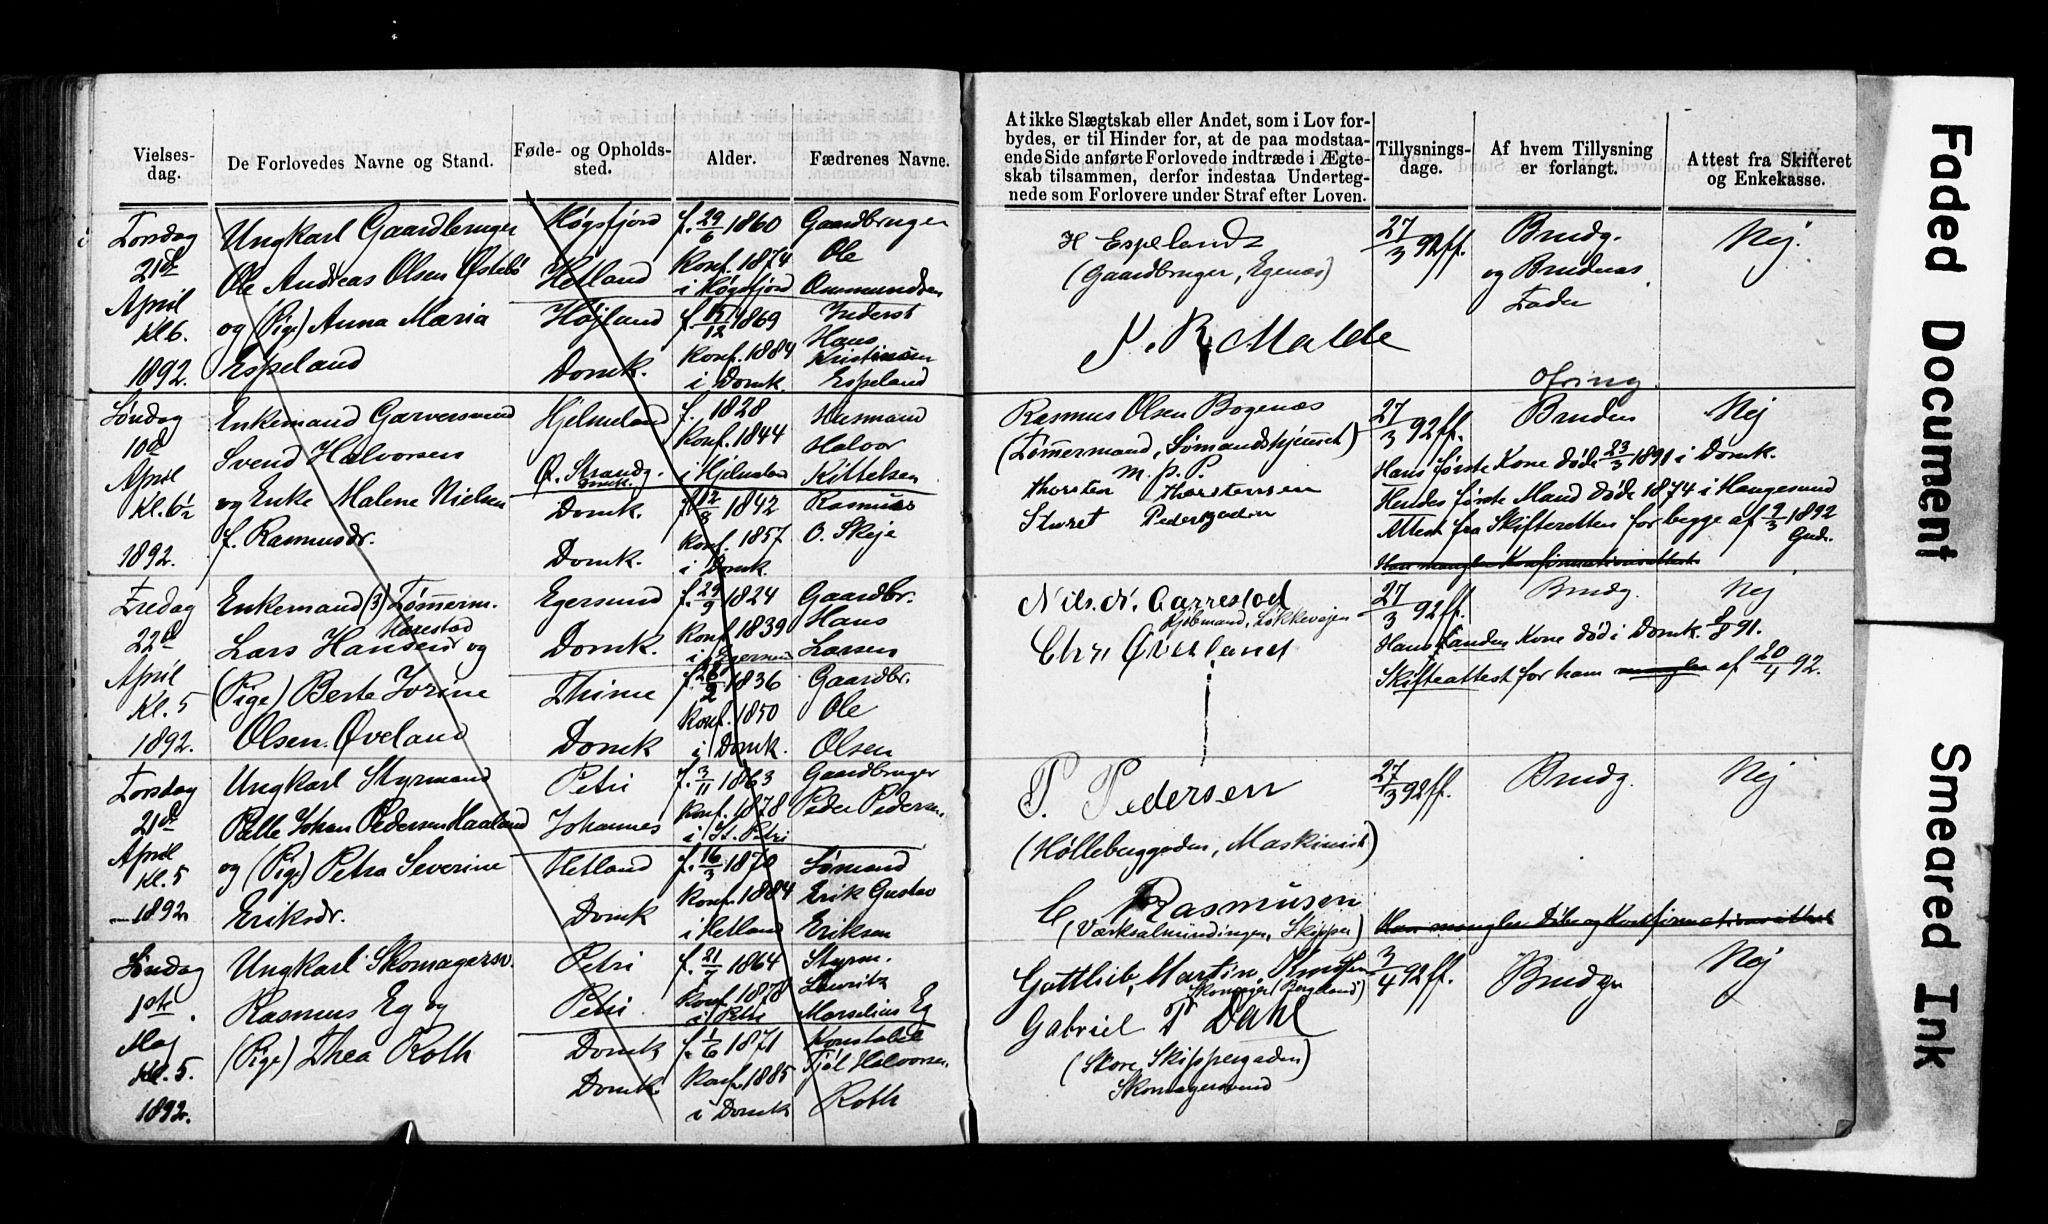 Vielses-
dag.
De Forlovedes Navne og Stand.
Føde- og Opholds-
sted.
Alder.
Fædrenes Navne.
At ikke Slægtskab eller Andet, som i Lov for-
bydes, er til Hinder for, at de paa modstaa-
ende Side anførte Forlovede indtræde i Ægte-
skab tilsammen, derfor indestaa Underteg-
nede som Forlovere under Straf efter Loven.
Tillysnings-
dage.
Af hvem Tillysning
er forlangt.
Attest fra Skifteret
og Enkekasse.
Torsdag
21de
April
Kl. 6.
1892.
Ungkarl Gaardbruger
Ole Andreas Olsen Østebø
og (Pige) Anna Maria
Espeland
Høgsfjord
Hetland
Højland
Domk.
f. 29/6 1860
Konf. 1874
i Høgsfjord
f. 15/12 1869
Konf. 1884
i Domk.
Gaardbruger
Ole
Ommundsen
Inderst
Hans
Kristiansen
Espeland
H Espeland
(Gaardbruger, Egenæs)
J. R. Malde
27/3 92 ff.
Brudg.
og Brudens
Fader
Nej.
Søndag
10de
April
Kl. 6½
1892.
Enkemand Garversvend
Svend Halvorsen
og Enke Malene Nielsen
f. Rasmusdr.
Hjelmeland
Ø. Strandg.
Domk.
Domk.
Domk.
f. 1828
Konf. 1844
i Hjelmeland
f. 12/8 1842
Konf. 1857
i Domk.
Husmand
Halvor
Kittelsen
Rasmus
O. Skeje
Rasmus Olsen Bogenæs
(Tømmermand, Sømandshjemmet)
m. p. P.
Thorsten Thorstensen
Sturet Pedersgaden
27/3 92 ff.
Ofring
Bruden
Nej
Hans første Kone døde 23/3 1891 i Domk.
Hendes første Mand døde 1874 i Haugesund
Attest fra Skifteretten for begge af 9/3 1892
Han mangler Konfirmationsattest
Fredag
22de
April
Kl. 5
1892.
Enkemand (3) Tømmerm.
Harestad
Lars Hansen og
(Pige) Berte Jorine
Olsen Øveland
Egersund
Domk.
Thime
Domk
f. 29/9 1824
Konf. 1839
i Egersund
f. 26/2 1836
Konf. 1850
i Domk.
Gaardbr.
Hans
Larsen
Gaardbr.
Ole
Olsen
Nils. N. Garrestad
Kjøbmand, Løkkevejen
Chr. Øveland
27/3 92 ff.
Brudg.
Nej
Hans anden Kone død i Domk. 8/8 91.
Skifteattest for ham mangler af 20/4 92.
Torsdag
21de
April
Kl. 5
1892
Ungkarl Styrmand
Palle Johan Pedersen Haaland
og (Pige) Petra Severine
Eriksdr.
Petri
Johannes
Hetland
Domk
f. 3/11 1863
Konf. 1878
i St. Petri
f. 16/3 1870
Konf. 1884
i Hetland
Gaardbruger
Peder Pedersen
Sømand
Erik Gustav
Eriksen
P. Pedersen
(Hølleberggaden, Maskinist)
C Rasmusen
(Værksalmindingen, Skipper)
27/3 92 ff.
Brudg.
Nej
Han mangler Døbe og Konfirmationsattest
Søndag
1ste
Maj
Kl. 5.
1892.
Ungkarl Skomagersv.
Rasmus Eg og
(Pige) Thea Roth
Petri
Petri
Domk
Domk.
f. 21/7 1864
Konf. 1878
i Petri
f. 1/6 1871
Konf. 1885
i Domk
Styrm.
Lauritz
Marselius Eg
Konstabel
Tjøl Halvorsen
Roth
Gottlieb, Martin, Knudsen
Skomager (Bergeland)
Gabriel P Dahl
(Store Skippergaden)
Skomagersvend
3/4 92 ff.
Brudgm
Nej
Faded Document
Smeared Ink